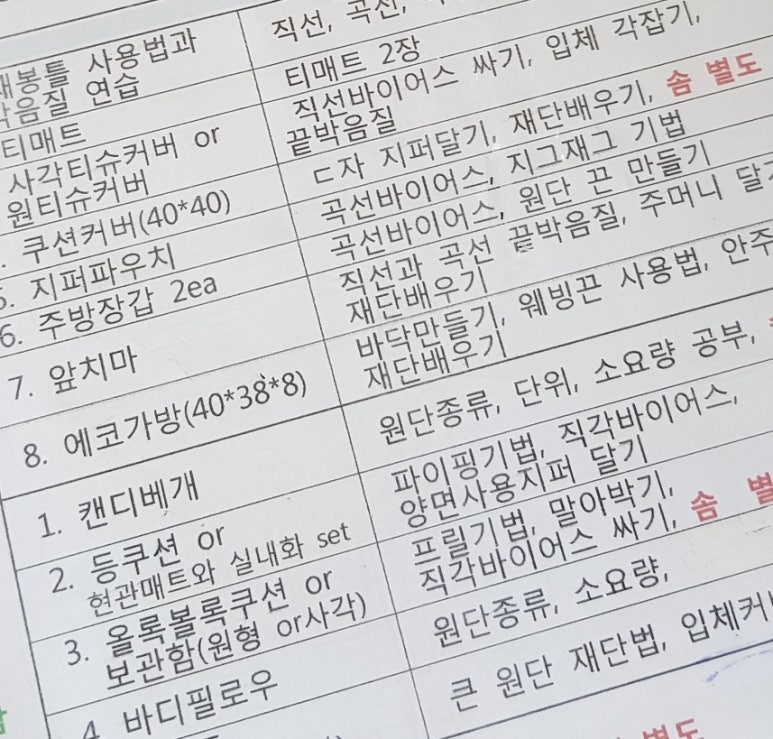 재봉틀 사용법과
박음질 연습
직선, 곡선,
티매트
티매트 2장
사각티슈커버 or
원티슈커버
직선바이어스 싸기, 입체 각잡기,
끝박음질
쿠션커버(40*40)
ㄷ자 지퍼달기, 재단배우기, 솜 별도
5. 지퍼파우치
곡선바이어스, 지그재그 기법
6. 주방장갑 2ea
곡선바이어스, 원단 끈 만들기
7. 앞치마
직선과 곡선 끝박음질, 주머니 달기
재단배우기
8. 에코가방(40*38*8)
바닥만들기, 웨빙끈 사용법, 안주
재단배우기
1. 캔디베개
원단종류, 단위, 소요량 공부,
2. 등쿠션 or
현관매트와 실내화 set
파이핑기법, 직각바이어스,
양면사용지퍼 달기
3. 올록볼록쿠션 or
보관함(원형 or사각)
프릴기법, 말아박기,
직각바이어스 싸기, 솜 별
4. 바디필로우
원단종류, 소요량,
큰 원단 재단법, 입체커버
별도